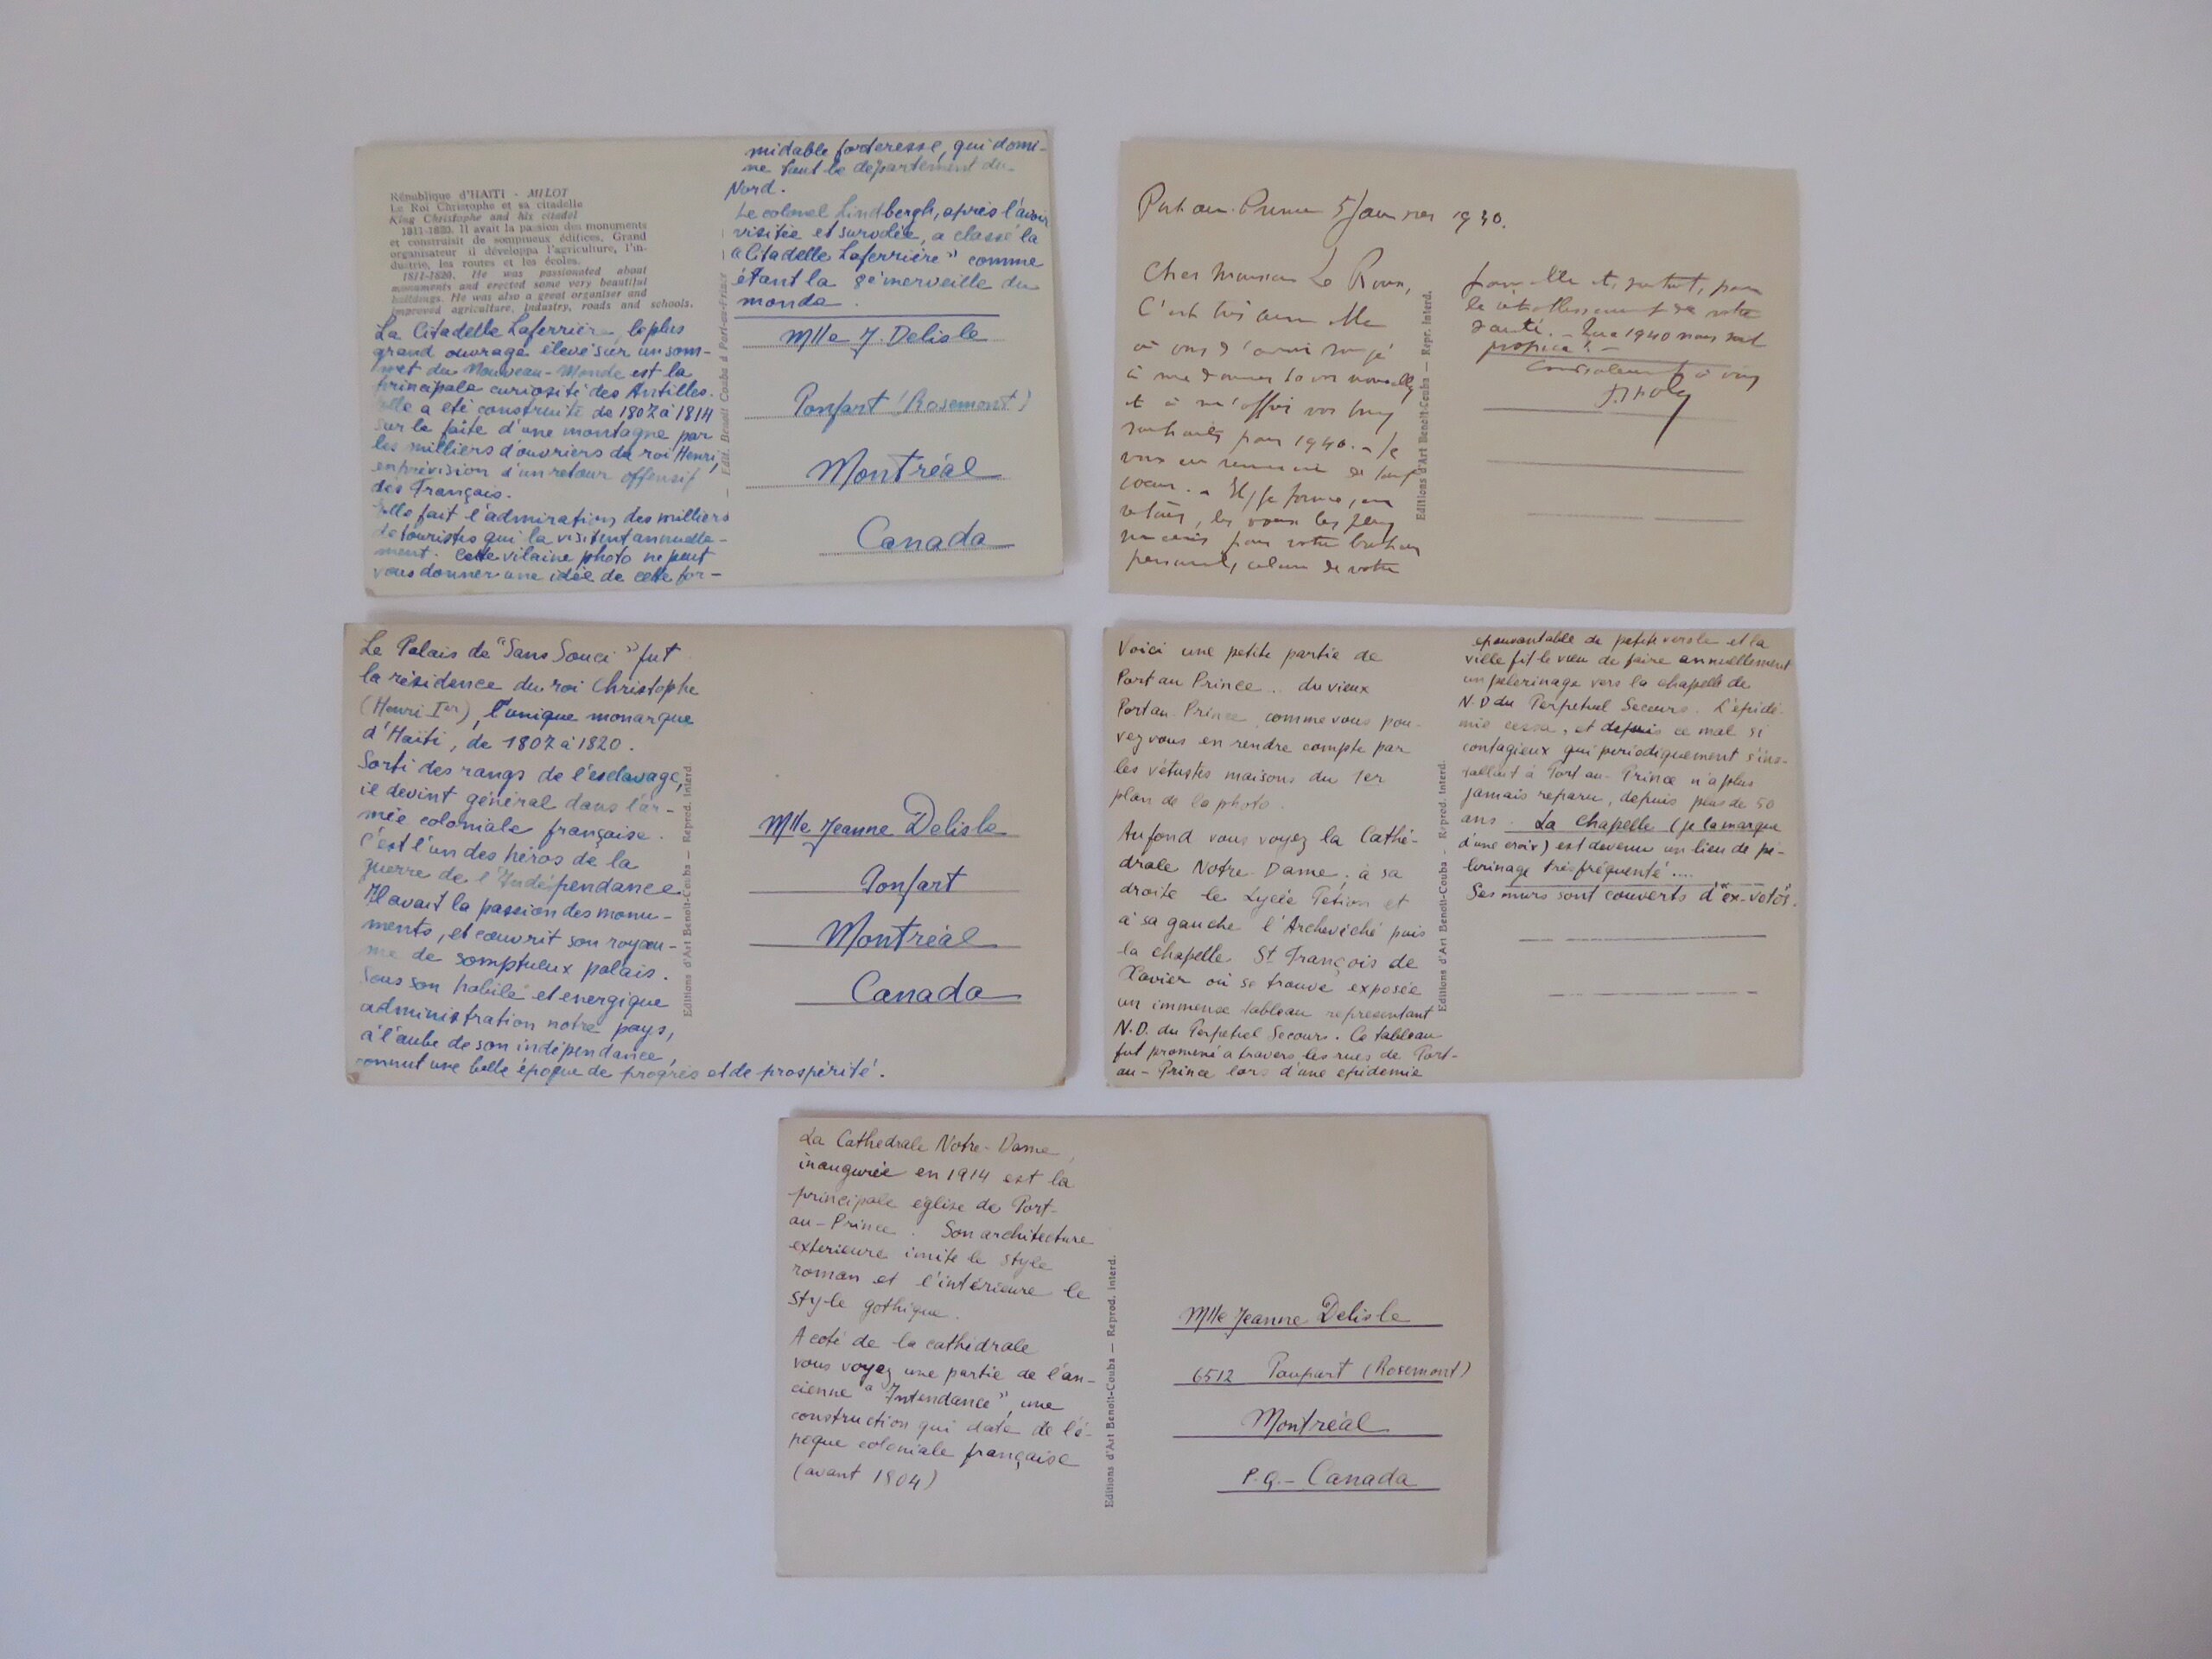 République d'HAITI - MILOT
Le Roi Christophe et sa citadelle
King Christophe and his citadel
1811-1820. Il avait la passion des monuments
et construisit de somptueux édifices. Grand
organisateur il développa l'agriculture, l'in-
dustrie, les routes et les écoles.
1811-1820. He was passionated about
monuments and erected some very beautiful
buildings. He was also a great organiser and
improved agriculture, industry, roads and schools.
La Citadelle Laferrière, le plus
grand ouvrage élevé sur un som-
met du Nouveau-Monde est la
principale curiosité des Antilles.
Elle a été construite de 1807 à 1814
sur le faîte d'une montagne par
les milliers d'ouvriers du roi Henri,
en prévision d'un retour offensif
des Français.
Elle fait l'admiration des milliers
de touristes qui la visitent annuelle-
ment. Cette vilaine photo ne peut
vous donner une idée de cette for-
midable forteresse, qui domi-
ne tout le département du
Nord.
Le colonel Lindbergh, après l'avoir
visitée et survolée, a classé la
"Citadelle Laferrière" comme
étant la 8e merveille du
monde.
Edit. Benoit Couba à Port-au-Prince
Mlle J. Delisle
(Rosemont)
Montréal
Canada
Port au Prince 5 Janvier 1940.
Cher Monsieur Le Roux,
C'est très aimable
à vous d'avoir songé
à me donner de vos nouvelles
et à m'offrir vos bons
souhaits pour 1940. - Je
vous en remercie de tout
coeur. - Et je forme, en
retour, les voeux les plus
sincères pour votre bonheur
personnel, celui de votre
famille et, surtout, pour
le rétablissement de votre
santé. - Que 1940 nous soit
propice! -
Cordialement à vous
Editions d'Art Benoit-Couba — Repr. Interd.
Le Palais de "Sans Souci" fut
la résidence du roi Christophe
(Henri Ier), l'unique monarque
d'Haïti, de 1807 à 1820.
Sorti des rangs de l'esclavage,
il devint général dans l'ar-
mée coloniale française.
C'est l'un des héros de la
guerre de l'Indépendance.
Il avait la passion des monu-
ments, et couvrit son royau-
me de somptueux palais.
Sous son habile et energique
administration notre pays,
à l'aube de son indépendance,
connut une belle époque de progrès et de prospérité.
Editions d'Art Benoit-Couba — Reprod. interd.
Mlle Jeanne Delisle
Montréal
Canada
Voici une petite partie de
Port au Prince .. du vieux
Port au Prince comme vous pou-
vez vous en rendre compte par
les vétustes maisons du 1er
plan de la photo.
Au fond vous voyez la Cathé-
drale Notre Dame, à sa
droite le Lycée Pétion et
à sa gauche l'Archevêché puis
la chapelle St François de
Xavier où se trouve exposée
un immense tableau représentant
N.D. du Perpétuel Secours. Ce tableau
fut promené a travers les rues de Port-
au-Prince lors d'une epidemie
epouvantable de petite verole et la
ville fit le vœu de faire annuellement
un pèlerinage vers la chapelle de
N.D du Perpetuel Secours. L'épidé-
mie cessa, et depuis ce mal si
contagieux qui périodiquement s'ins-
tallait à Port au-Prince n'a plus
jamais reparu, depuis plus de 50
ans. La Chapelle (je la marque
d'une croix) est devenu un lieu de pé-
lerinage très fréquenté....
Ses murs sont couverts d'"ex-votos".
Editions d'Art Benoit-Couba - Reprod. interd.
La Cathedrale Notre-Dame,
inaugurée en 1914 est la
principale église de Port-
au-Prince. Son architecture
exterieure imite le style
roman et l'intérieure le
style gothique.
A coté de la cathédrale
vous voyez une partie de l'an-
cienne "Intendance", une
construction qui date de l'é-
poque coloniale française
(avant 1804)
Editions d'Art Benoit-Couba — Reprod. interd.
Mlle Jeanne Delisle
6512 Paupart (Rosemont)
Montréal
P.Q.- Canada